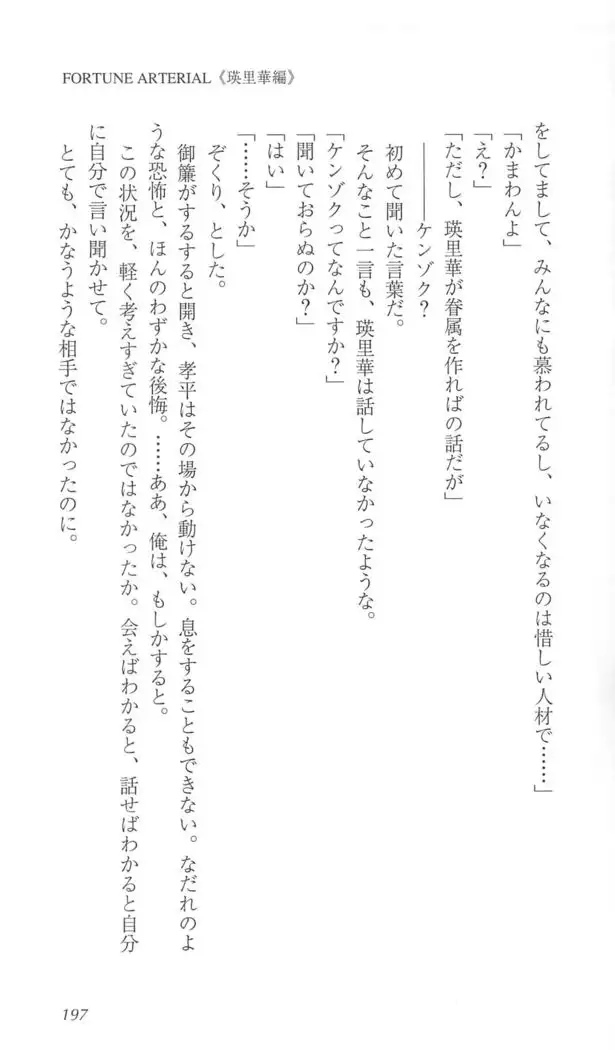 FORTUNE ARTERIAL《瑛里華編》
をしてまして、みんなにも慕われてるし、いなくなるのは惜しい人材で……」
「かまわんよ」
「え？」
「ただし、瑛里華が眷属を作ればの話だが」
――――ケンゾク？
初めて聞いた言葉だ。
そんなこと一言も、瑛里華は話していなかったような。
「ケンゾクってなんですか？」
「聞いておらぬのか？」
「はい」
「……そうか」
ぞくり、とした。
御簾がするすると開き、孝平はその場から動けない。息をすることもできない。なだれのよ
うな恐怖と、ほんのわずかな後悔。……ああ、俺は、もしかすると。
この状況を、軽く考えすぎていたのではなかったか。会えばわかると、話せばわかると自分
に自分で言い聞かせて。
とても、かなうような相手ではなかったのに。
197